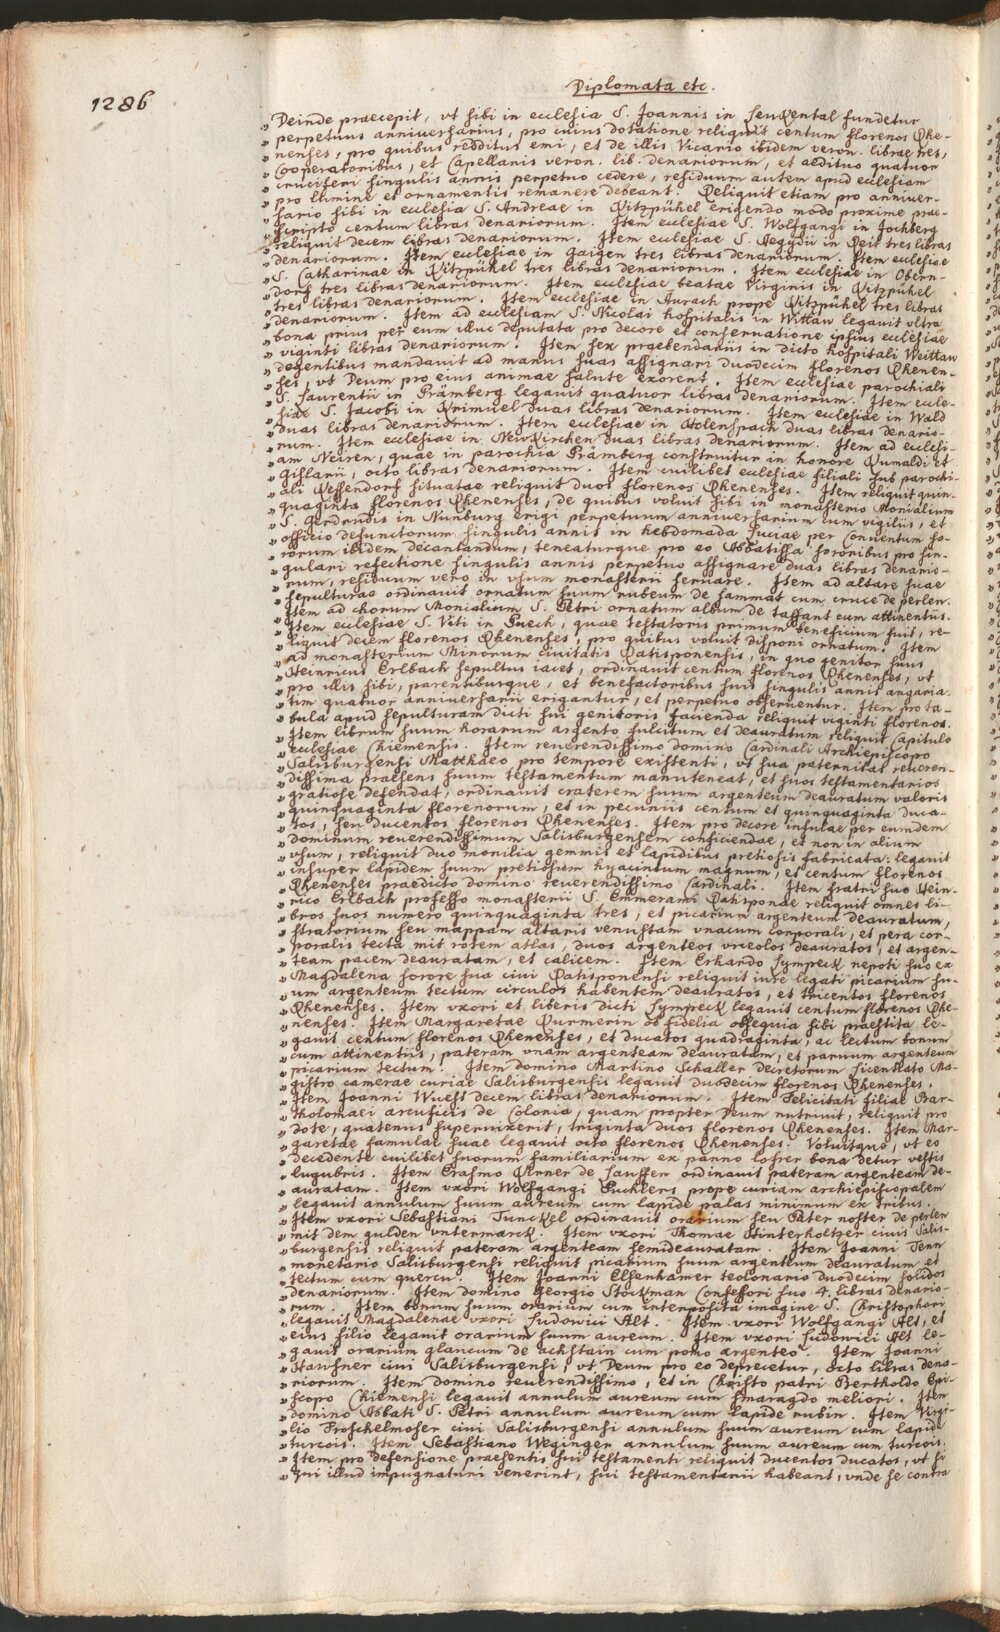 1286
Diplomata etc.
„ Deinde praecepit, vt sibi in ecclesia S. Joannis in Leukental fundetur
„ perpetuus anniuersarius, pro cuius dotatione reliquit centum florenos Rhe-
„ nenses, pro quibus redditus emi, et de illis Vicario ibidem veron. librae tres,
„ Cooperatoribus, et Capellanis veron. lib. denariorum, et aedituo quatuor
„ cruciferi singulis annis perpetuo cedere, residuum autem apud ecclesiam
„ pro lumine et ornamentis remanere debeant. Reliquit etiam pro anniuer-
„ sario sibi in ecclesia S. Andreae in Kitzpühel erigendo modo proxime prae-
„ scripto centum libras denariorum. Item ecclesiae S. Wolfgangi in Jochberg
„ reliquit decem libras denariorum. Item ecclesiae S. Aegydii in Reit tres libras
„ denariorum. Item ecclesiae in Gaigen tres libras denariorum. Item ecclesiae
„ S. Catharinae in Kitzpühel tres libras denariorum. Item ecclesiae in Obern-
„ dorf tres libras denariorum. Item ecclesiae beatae Virginis in Kitzpühel
„ tres libras denariorum. Item ecclesiae in Aurach prope Kitzpühel tres libras
„ denariorum. Item ad ecclesiam S. Nicolai hospitalis in Wittaw legauit vltra
„ bona prius per eum illuc deputata pro decore et conseruatione ipsius ecclesiae
„ viginti libras denariorum. Item sex praebendariis in dicto hospitali Weittaw
„ degentibus mandauit ad manus suas assignari duodecim florenos Rhenen-
„ ses, vt Deum pro eius animae salute exorent. Item ecclesiae parochiali
„ S. Laurentii in Prämberg legauit quatuor libras denariorum. Item eccle-
„ siae S. Jacobi in Krimuel duas libras denariorum. Item ecclesiae in Wald
„ duas libras denariorum. Item ecclesiae in Holenspach duas libras denario-
„ rum. Item ecclesiae in Newkirchen duas libras denariorum. Item ad ecclesi-
„ am Neiren, quae in parochia Prämberg construitur in honore Rumaldi et
„ Gislarii, octo libras denariorum. Item cuilibet ecclesiae filiali sub parochi-
„ ali Vessendorf situatae reliquit duos florenos Rhenenses. Item reliquit quin-
„ quaginta florenos Rhenenses, de quibus voluit sibi in monasterio Monialium
„ S. Gerdrudis in Nunburg erigi perpetuum anniuersarium cum vigiliis, et
„ officio defunctorum singulis annis in hebdomada Luciae per Conuentum so-
„ rorum ibidem decantandum, teneaturque pro eo Abbatissa sororibus pro sin-
„ gulari refectione singulis annis perpetuo assignare duas libras denario-
„ rum, residuum vero in vsum monasterii seruare. Item ad altare suae
„ sepulturae ordinauit ornatum suum rubeum de sammat cum cruce de perlen.
„ Item ad chorum Monialium S. Petri ornatum album de taffant cum attinentiis.
„ Item ecclesiae S. Viti in Puech, quae testatoris primum beneficium fuit, re-
„ liquit decem florenos Rhenenses, pro quibus voluit disponi ornatum. Item
„ ad monasterium Minorum ciuitatis Ratisponensis, in quo genitor suus
„ Heinricus Erlbach sepultus iacet, ordinauit centum florenos Rhenenses, vt
„ pro illis sibi, parentiburque, et benefactoribus suis singulis annis angaria-
„ tim quatuor anniuersarii erigantur, et perpetuo obseruentur. Item pro ta-
„ bula apud sepulturam dicti sui genitoris facienda reliquit viginti florenos.
„ Item librum suum horarum argento fulcitum et deauratum reliquit Capitulo
„ ecclesiae Chiemensis. Item reuerendissimo domino Cardinali Archiepiscopo
„ Salisburgensi Matthaeo pro tempore existenti, vt sua paternitas reueren-
„ dissima praesens suum testamentum manuteneat, et suos testamentarios
„ gratiose defendat, ordinauit craterem suum argenteum deauratum valoris
„ quinquaginta florenorum, et in pecuniis centum et quinquaginta duca-
„ tos, seu ducentos florenos Rhenenses. Item pro decore insulae per eumdem
„ dominum reuerendissimum Salisburgensem conficiendae, et non in alium
„ vsum, reliquit duo monilia gemmis et lapidibus pretiosis fabricata: legauit
„ insuper lapidem suum pretiosum hyacintum magnum, et centum florenos
„ Rhenenses praedicto domino reuerendissimo Cardinali. Item fratri suo Hein-
„ rico Erlbach professo monasterii S. Emmerami Ratisponae reliquit omnes li-
„ bros suos numero quinquaginta tres, et picarium argenteum deauratum,
„ stratorium seu mappam altaris venustam vnacum corporali, et pera cor-
„ poralis tecta mit rotem atlas, duos argenteos vrceolos deauratos, et argen-
„ team pacem deauratam, et calicem. Item Erhardo Lympeck nepoti suo ex
„ Magdalena sorore sua ciui Ratisponensi reliquit iure legati picarium su-
„ um argenteum tectum circulos habentem deauratos, et tricentos florenos
„ Rhenenses. Item vxori et liberis dicti Lympeck legauit centum florenos Rhe-
„ nenses. Item Margaretae Durmerin ob fidelia obsequia sibi praestita le-
„ gauit centum florenos Rhenenses, et ducatos quadraginta, ac lectum bonum
„ cum attinentiis, pateram vnam argenteam deauratam, et paruum argenteum
„ picarium tectum. Item domino Martino Schaller decretorum licentiato Ma-
„ gistro camerae curiae Salisburgensis legauit duodecim florenos Rhenenses.
„ Item Joanni Wuest decem libras denariorum. Item Felicitati filiae Bar-
„ tholomaei arcuficis de Colonia, quam propter Deum nutriuit, reliquit pro
„ dote, quatenus superuixerit, triginta duos florenos Rhenenses. Item Mar-
„ garetae famulae suae legauit octo florenos Rhenenses. Voluitque, vt eo
„ decedente cuilibet suorum familiarium ex panno lofrer bona detur vestis
„ lugubris. Item Erasmo Perner de Lauffen ordinauit pateram argenteam de-
„ auratam. Item vxori Wolfgangi Puchlers prope curiam archiepiscopalem
„ legauit annulum suum aureum cum lapide palas minimum ex tribus.
„ Item vxori Sebastiani Tunckel ordinauit orarium seu Pater noster de perlen
„ mit dem gulden vntermarck. Item vxori Thomae Hinterholtzer ciuis Salis-
„ burgensis reliquit pateram argenteam semideauratam. Item Joanni Tenn
„ monetario Salisburgensi reliquit picarium suum argenteum deauratum et
„ tectum cum quercu. Item Joanni Elsenhamer teolonario duodecim solidos
„ denariorum. Item domino Georgio Stöckman Confessori suo 4. libras denario-
„ rum. Item bonum suum orarium cum interposita imagine S. Christophori
„ legauit Magdalenae vxori Ludowici Alt. Item vxori Wolfgangi Alt, et
„ eius filio legauit orarium suum aureum. Item vxori Ludowici Alt le-
„ gauit orarium glaucum de achstain cum pomo argenteo. Item Joanni
„ Harisner ciui Salisburgensi, vt Deum pro eo deprecetur, octo libras dena-
„ riorum. Item domino reuerendissimo, et in Christo patri Bertholdo Epi-
„ scopo Chiemensi legauit annulum aureum cum smaragdo meliori. Item
„ domino Abbati S. Petri annulum aureum cum lapide rubin. Item Virgi-
„ lio Froschelmoser ciui Salisburgensi annulum suum aureum cum lapide
„ turcois. Item Sebastiano Weginger annulum suum aureum cum turcois.
„ Item pro defensione praesentis sui testamenti reliquit ducentos ducatos, vt si
„ qui illud impugnaturi venerint, sui testamentarii habeant, vnde se contra